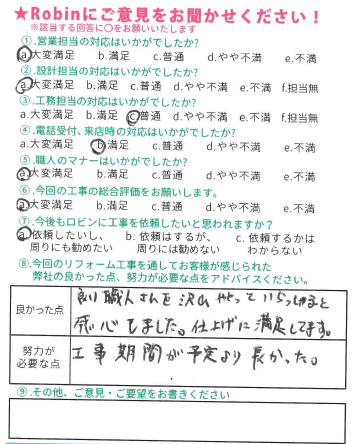 ★Robinにご意見をお聞かせください！
※該当する回答に○をお願いいたします
①.営業担当の対応はいかがでしたか?
a.大変満足 b.満足 c.普通 d.やや不満 e.不満
②.設計担当の対応はいかがでしたか?
a.大変満足 b.満足 c.普通 d.やや不満 e.不満 f.担当無
③.工務担当の対応はいかがでしたか?
a.大変満足 b.満足 c.普通 d.やや不満 e.不満 f.担当無
④.電話受付、来店時の対応はいかがでしたか?
a.大変満足 b.満足 c.普通 d.やや不満 e.不満
⑤.職人のマナーはいかがでしたか?
a.大変満足 b.満足 c.普通 d.やや不満 e.不満
⑥.今回の工事の総合評価をお願いします。
a.大変満足 b.満足 c.普通 d.やや不満 e.不満
⑦.今後もロビンに工事を依頼したいと思われますか？
a.依頼したいし、 b. 依頼はするが、 c. 依頼するかは
周りにも勧めたい 周りには勧めない わからない
⑧.今回のリフォーム工事を通してお客様が感じられた
弊社の良かった点、努力が必要な点をアドバイスください。
良かった点
良い職人さんを沢山やとっていらっしゃると
感心しました。仕上げに満足してます。
努力が
必要な点
工事期間が予定より長かった。
⑨.その他、ご意見・ご要望をお書きください